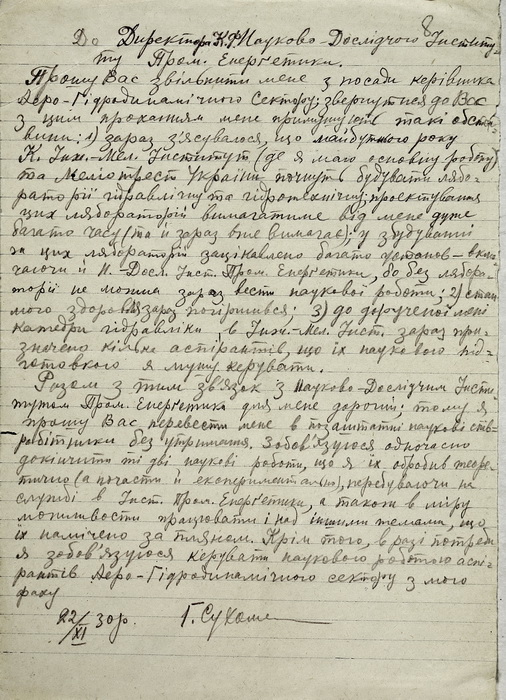 До Директора К.Ф. Науково-Дослідчого Інститу-
ту Пром. Енерґетики.
Прошу Вас звільнити мене з посади керівника
Аеро-Гідродинамічного Сектору; звернутися до Вас
з цим проханням мене примушують такі обста-
вини: 1) зараз з'ясувалося, що майбутнього року
К. Інж.-Мел. Інститут (де я маю основну роботу)
та Меліотрест України почнуть будувати лябо-
раторії гідравлічну та гідротехнічну; проєктування
цих ляборатрій вимагатиме від мене дуже
багато часу (та й зараз вже вимагає); у збудуванні
цих ляборатрій зацікавлено багато установ – вклю-
чаючи й Н.-Досл. Інст. Пром. Енерґетики, бо без лябора-
торії не можна зараз вести наукової роботи; 2) стан
мого здоровля зараз погіршився; 3) до дорученої мені
катедри гідравліки в Інж.-Мел. Інст. зараз при-
значено кілька аспірантів, що їх науковою під-
готовкою я мушу керувати.
Разом з тим зв'язок з Науково-Дослідчим Інсти-
тутом Пром. Енерґетики для мене дорогий; тому я
прошу Вас перевести мене в позаштатні наукові спів-
робітники без утримання. Зобов'язуюся одночасно
докінчити ті дві наукові роботи, що я їх обробив теоре-
тично (а почасти й експериментально), перебуваючи на
службі в Інст. Пром. Енерґетики, а також в міру
можливости працювати і над іншими темами, що
їх намічено за пляном. Крім того, в разі потреби
я зобов'язуюся керувати науковою роботою аспі-
рантів Аеро-Гідродинамічного сектору з мого
фаху
22/XI 30 р. Г. Сухом